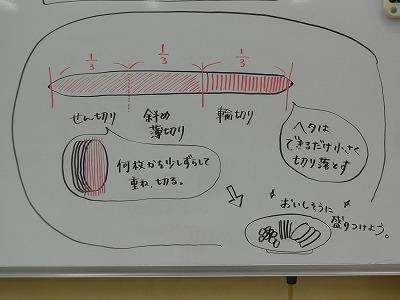 1/3 1/3 1/3
せん切り
斜め
薄切り
輪切り
ヘタは
できるだけ小さく
切り落とす
何枚かを少しずらして
重ね、切る。
おいしそうに
盛りつけよう。